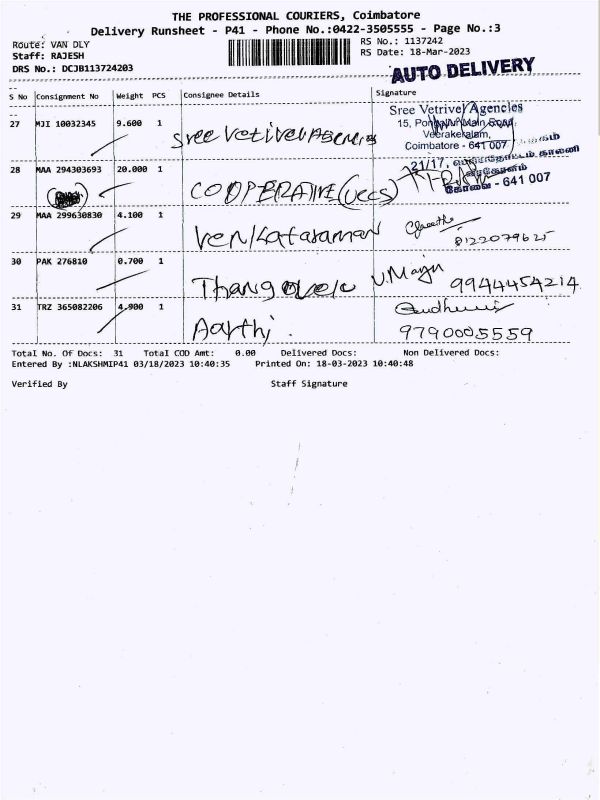 THE PROFESSIONAL COURIERS, Coimbatore
Delivery Runsheet - P41 - Phone No.:0422-3505555 - Page No.:3
Route: VAN DLY
Staff: RAJESH
DRS No.: DCJB113724203
RS No.: 1137242
RS Date: 18-Mar-2023
AUTO DELIVERY
S No Consignment No Weight PCS Consignee Details Signature
27 MJI 10032345 9.600 1 Sree Vetrivel Agencies
Sree Vetrivel Agencies
Main Road,
Veerakeralam,
Coimbatore - 641 007
28 MAA 294303693 20.000 1 COOPERATIVE (UCCS)
21/17,
கோவை - 641 007
29 MAA 299630830 4.100 1 Venkataraman
8122079625
30 PAK 276810 0.700 1 Thangavelu
9944454214
31 TRZ 365082206 4.900 1 Aarthi.
9790005559
Total No. Of Docs: 31 Total COD Amt: 0.00 Delivered Docs: Non Delivered Docs:
Entered By :NLAKSHMIP41 03/18/2023 10:40:35 Printed On: 18-03-2023 10:40:48
Verified By Staff Signature